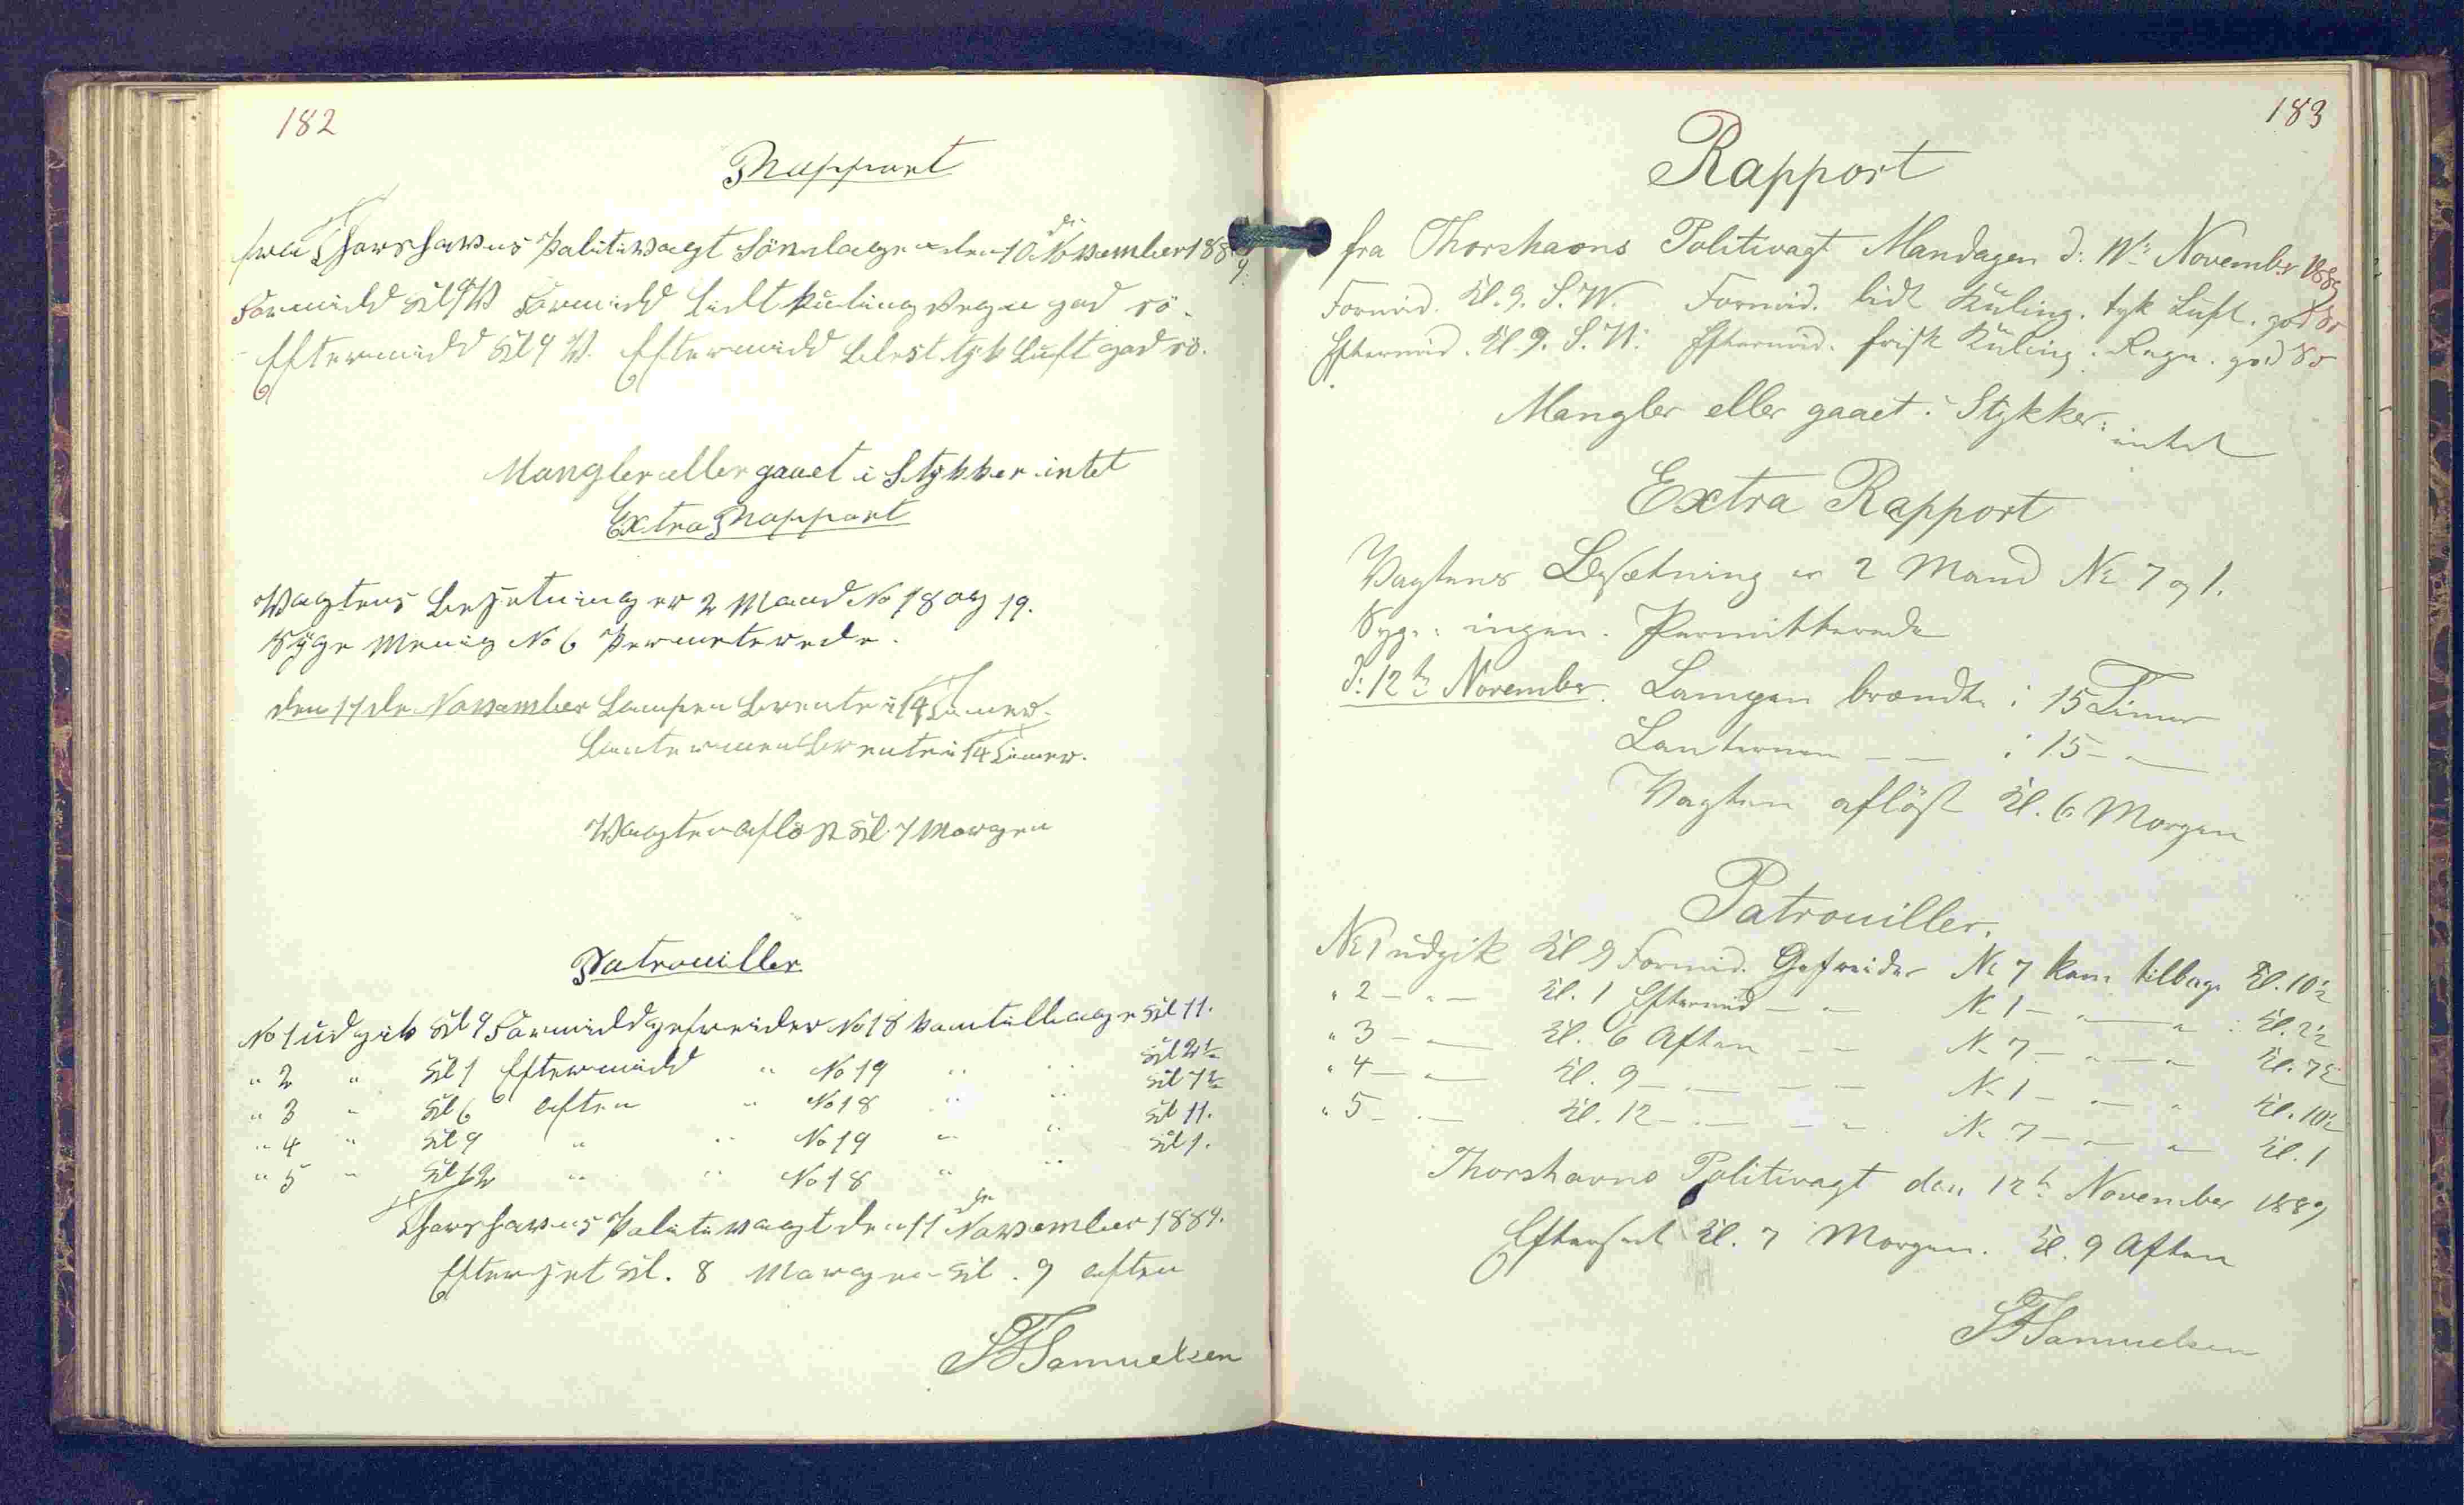 182
Rapport
fra Thorshavns Politivagt Söndagen den 10 de November 1889.
Formidd Kl 9 W Formidd lidt Kuling Regn god sö.
Eftermidd Kl 9 W. Eftermidd blest tyk Luft god sö.
Mangler eller gaaet i Stykker intet
Extra Rapport
Vagtens Besetning er 2 Mand No 18 og 19.
Syge Menig No 6 Permeterede.
den 11 de November Lampen brente i 14 Timer.
Lanternen brente i 14 Timer.
Vagten aflöst Kl. 7 Morgen
Patrouiller
No 1 udgik Kl 9 Formidd gefreider No 18 kom tilbage Kl 11.
" 2 " Kl 1 Eftermidd " No 19 " " Kl 2½
" 3 " Kl 6 aften " No 18 " " Kl 7½
" 4 " Kl 9 " " No 19 " " Kl 11.
" 5 " Kl 12 " " No 18 " " Kl 1.
Thorshavns Politivagt den 11 te November 1889.
Efterset Kl. 8 Morgen Kl. 9 aften
Samuelsen
183
Rapport
fra Thorshavns Politivagt Mandagen d: 11te November 1889
Formid. Kl. 9. S.W. Formid. lidt Kuling. tyk Luft. god Sö
Eftermid. Kl. 9. S.W. Eftermid. frisk Kuling. Regn. god Sö
Mangler eller gaaet i Stykker: intet
Extra Rapport
Vagtens Besætning er 2 Mand No 7 og 1.
Syge: ingen. Permitterede
d: 12te November. Lampen brændte i 15 Timer
Lanternen — — i 15 — " —
Vagten aflöst Kl. 6 Morgen
Patrouiller.
No 1 udgik Kl 9 Formid. Gefreider No 7 kom tilbage Kl. 10½
" 2 — " — Kl. 1 Eftermid — " No 1 — " — " : Kl. 2½
" 3 — " — Kl. 6 Aften — — No 7 — " — " Kl. 7½
" 4 — " — Kl. 9 — " — — — No 1 — " — " Kl. 10½
" 5 — " — Kl. 12 — " — — " No 7 — " — " Kl. 1
Thorshavns Politivagt den 12te November 1889
Efterset Kl. 7 Morgen. Kl. 9 Aften
Samuelsen